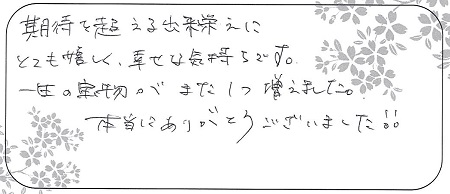 期待を超える出来栄えに
とても嬉しく、幸せな気持ちです。
一生の宝物がまた1つ増えました。
本当にありがとうございました!!